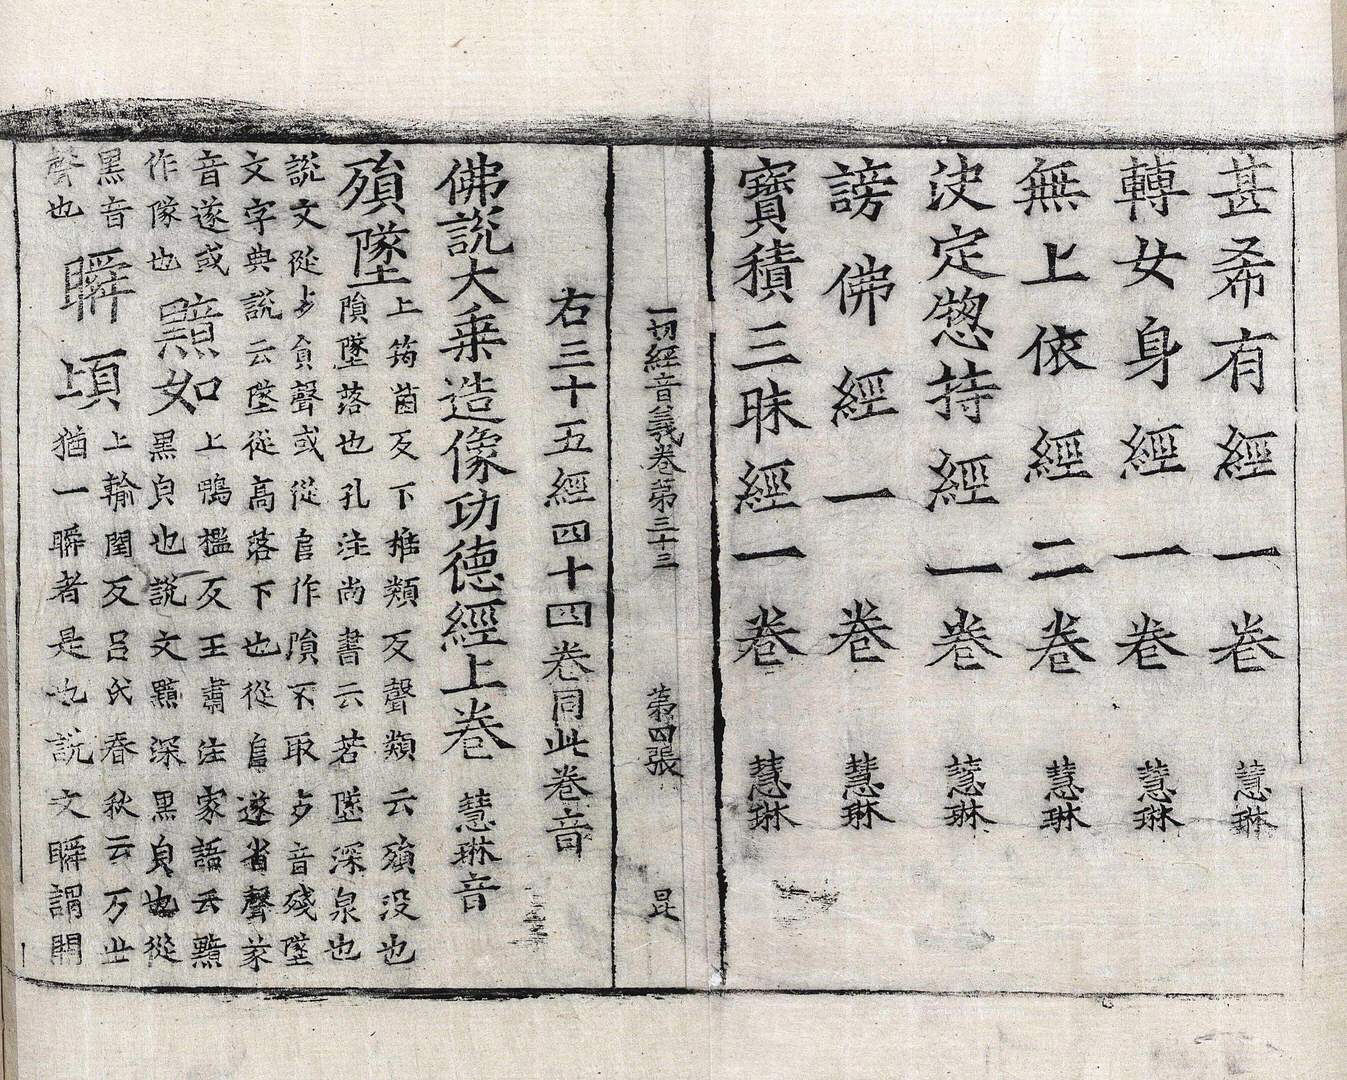 甚希有經一卷 慧琳
轉女身經一卷 慧琳
無上依經二卷 慧琳
決定惣持經一卷 慧琳
謗佛經一卷 慧琳
寶積三昧經一卷 慧琳
一切經音義卷第三十三 第四張 昆
右三十五經四十四卷同此卷音
佛說大乘造像功德經上卷 慧琳音
殞墜 上筠菌反下椎類反聲類云殞没也
隕墜落也孔注尚書云若墜深泉也
說文從歺貟聲或從𨸏作隕不取歺音殘墜
文字典說云墜從高落下也從𨸏遂省聲篆
音遂或
作隊也
黤如 上鴨檻反王肅注家語云黤
黑皃也說文黤深黑皃也從
黑音
聲也
瞬頃 上輸閏反呂氏春秋云万世
猶一瞬者是也說文瞬謂開